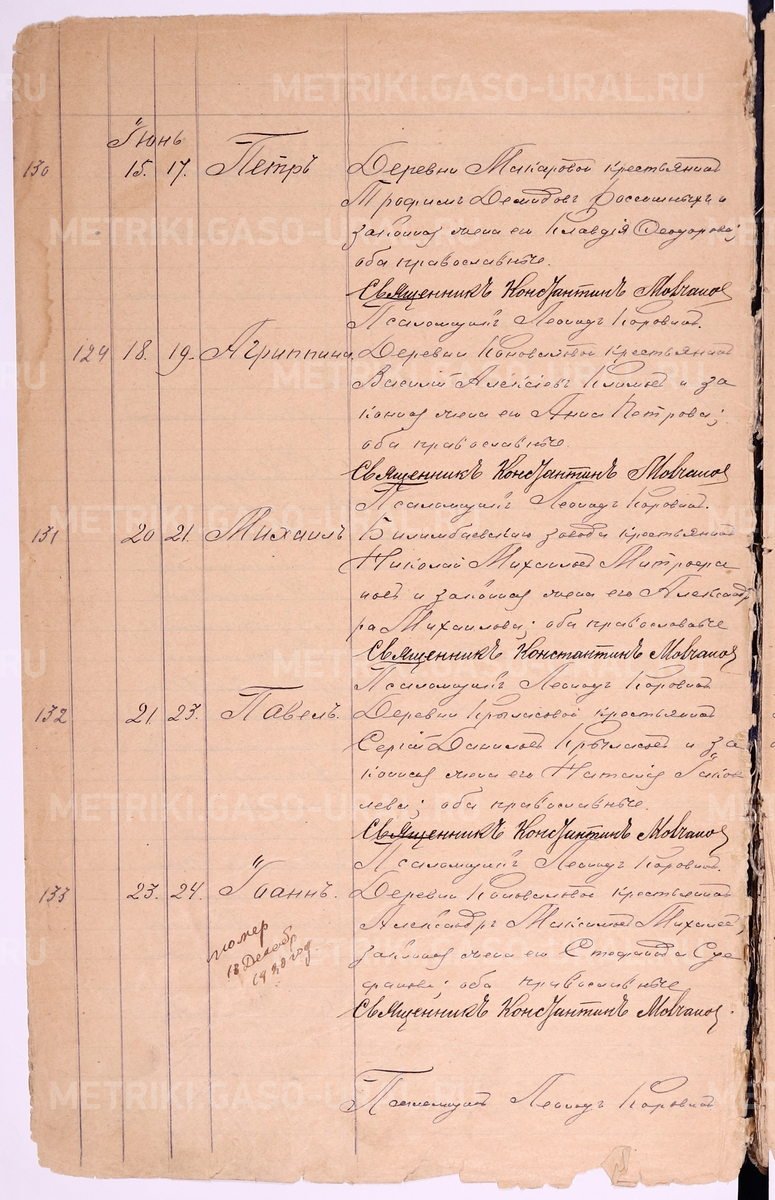 Іюнь
130 15. 17. Петръ Деревни Макаровой крестьянинъ
Трофимъ Демидовъ и
законная жена его Клавдія Ѳеодорова;
оба православные.
Священникъ Константинъ Мовчанов
Псаломщикъ Леонидъ Коровинъ.
124 18. 19. Агриппина Деревни Коноваловой крестьянинъ
Василій Алексѣевъ Климовъ и за
конная жена его Анна Петрова;
оба православные.
Священникъ Константинъ Мовчанов
Псаломщикъ Леонидъ Коровинъ.
131 20 21. Михаилъ Билимбаевскаго завода крестьянинъ
Николай Михаиловъ Митрофа
новъ и законная жена его Александ
ра Михаилова; оба православные
Священникъ Константинъ Мовчанов
Псаломщикъ Леонидъ Коровинъ
132 21. 23. Павелъ. Деревни Крыласовой крестьянинъ
Сергій Даниловъ Крыласовъ и за
конная жена его Наталія Іаков
лева; оба православные.
Священникъ Константинъ Мовчанов
Псаломщикъ Леонидъ Коровинъ.
133 23. 24. Іоаннъ. Деревни Коноваловой крестьянинъ
Александръ Максимовъ
законная жена его Стефанида
оба православные
помер
13 Декабр
год
Священникъ Константинъ Мовчанов.
Псаломщикъ Леонидъ Коровинъ
METRIKI.GASO-URAL.RU